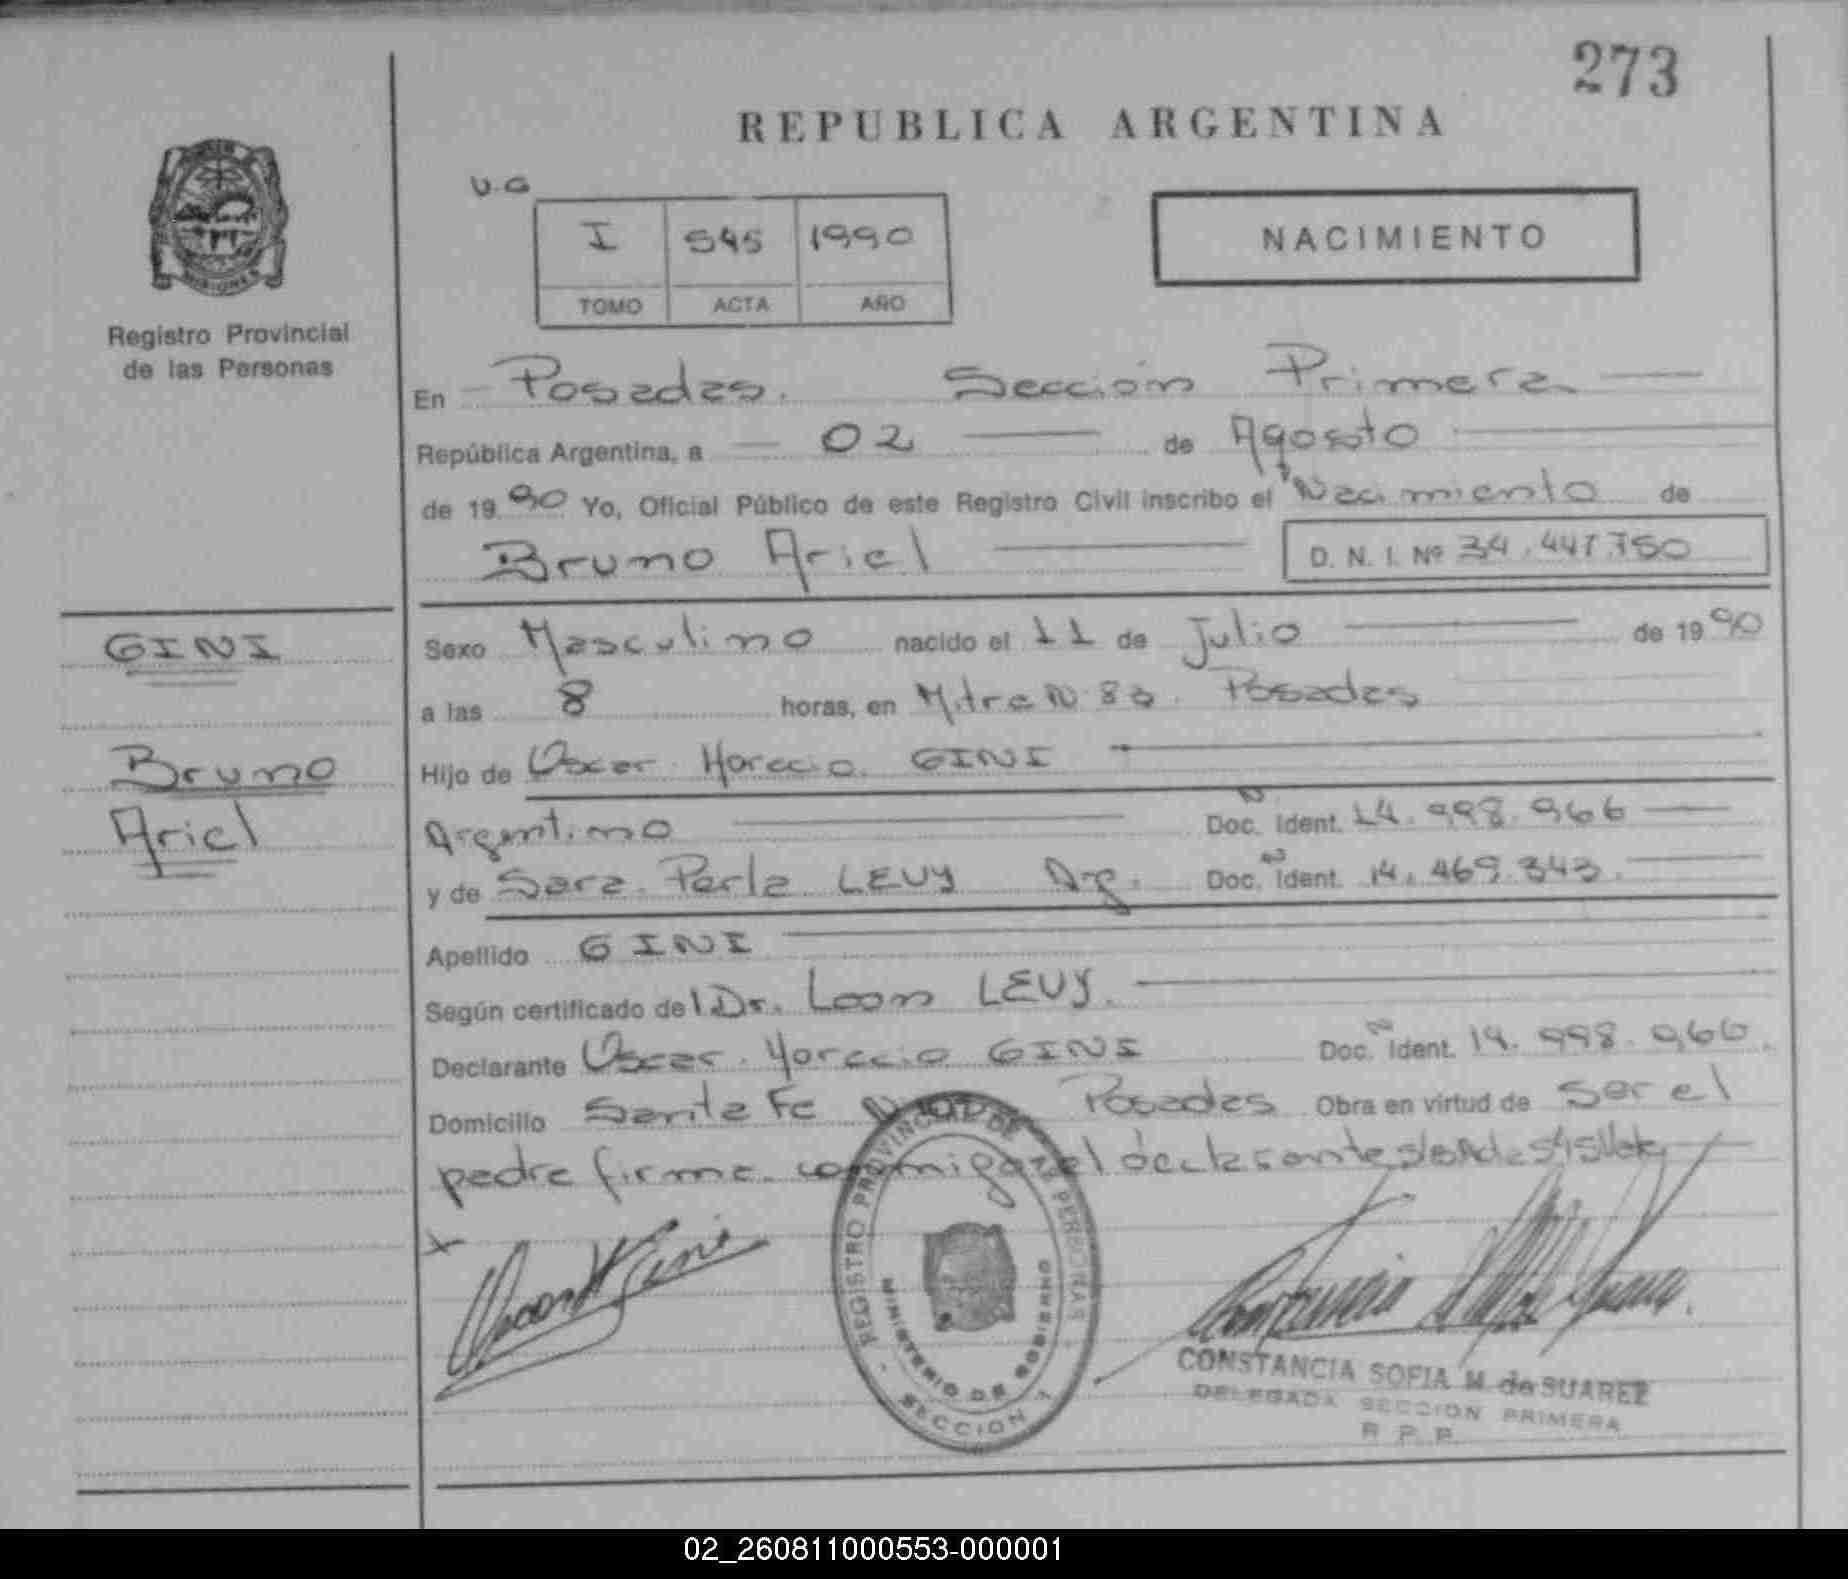 273
REPUBLICA ARGENTINA
V.G
I 545 1990
TOMO ACTA AÑO
NACIMIENTO
MISIONES
Registro Provincial
de las Personas
En Posadas. Sección Primera
República Argentina, a 02 de Agosto
de 1990 Yo, Oficial Público de este Registro Civil inscribo el Nacimiento de
Bruno Ariel D. N. I. Nº 34.447.750
GINI
Bruno
Ariel
Sexo Masculino nacido el 11 de Julio de 1990
a las 8 horas, en Mitre N 83. Posadas
Hijo de Oscar Horacio GINI
Argentino Doc. Ident. 14.998.966
y de Sara Perla LEVY Arg. Doc. Ident. 14.469.343.
Apellido GINI
Según certificado del Dr. Leon LEVY.
Declarante Oscar Horacio GINI Doc. Ident. 14.998.966.
Domicilio Santa Fe Posadas Obra en virtud de ser el
padre firma conmigo el declarante
Oscar H Gini
REGISTRO PROVINCIAL DE LAS PERSONAS
MINISTERIO DE GOBIERNO
SECCION 1
CONSTANCIA SOFIA M. de SUAREZ
DELEGADA SECCION PRIMERA
R. P. P.
02_260811000553-000001